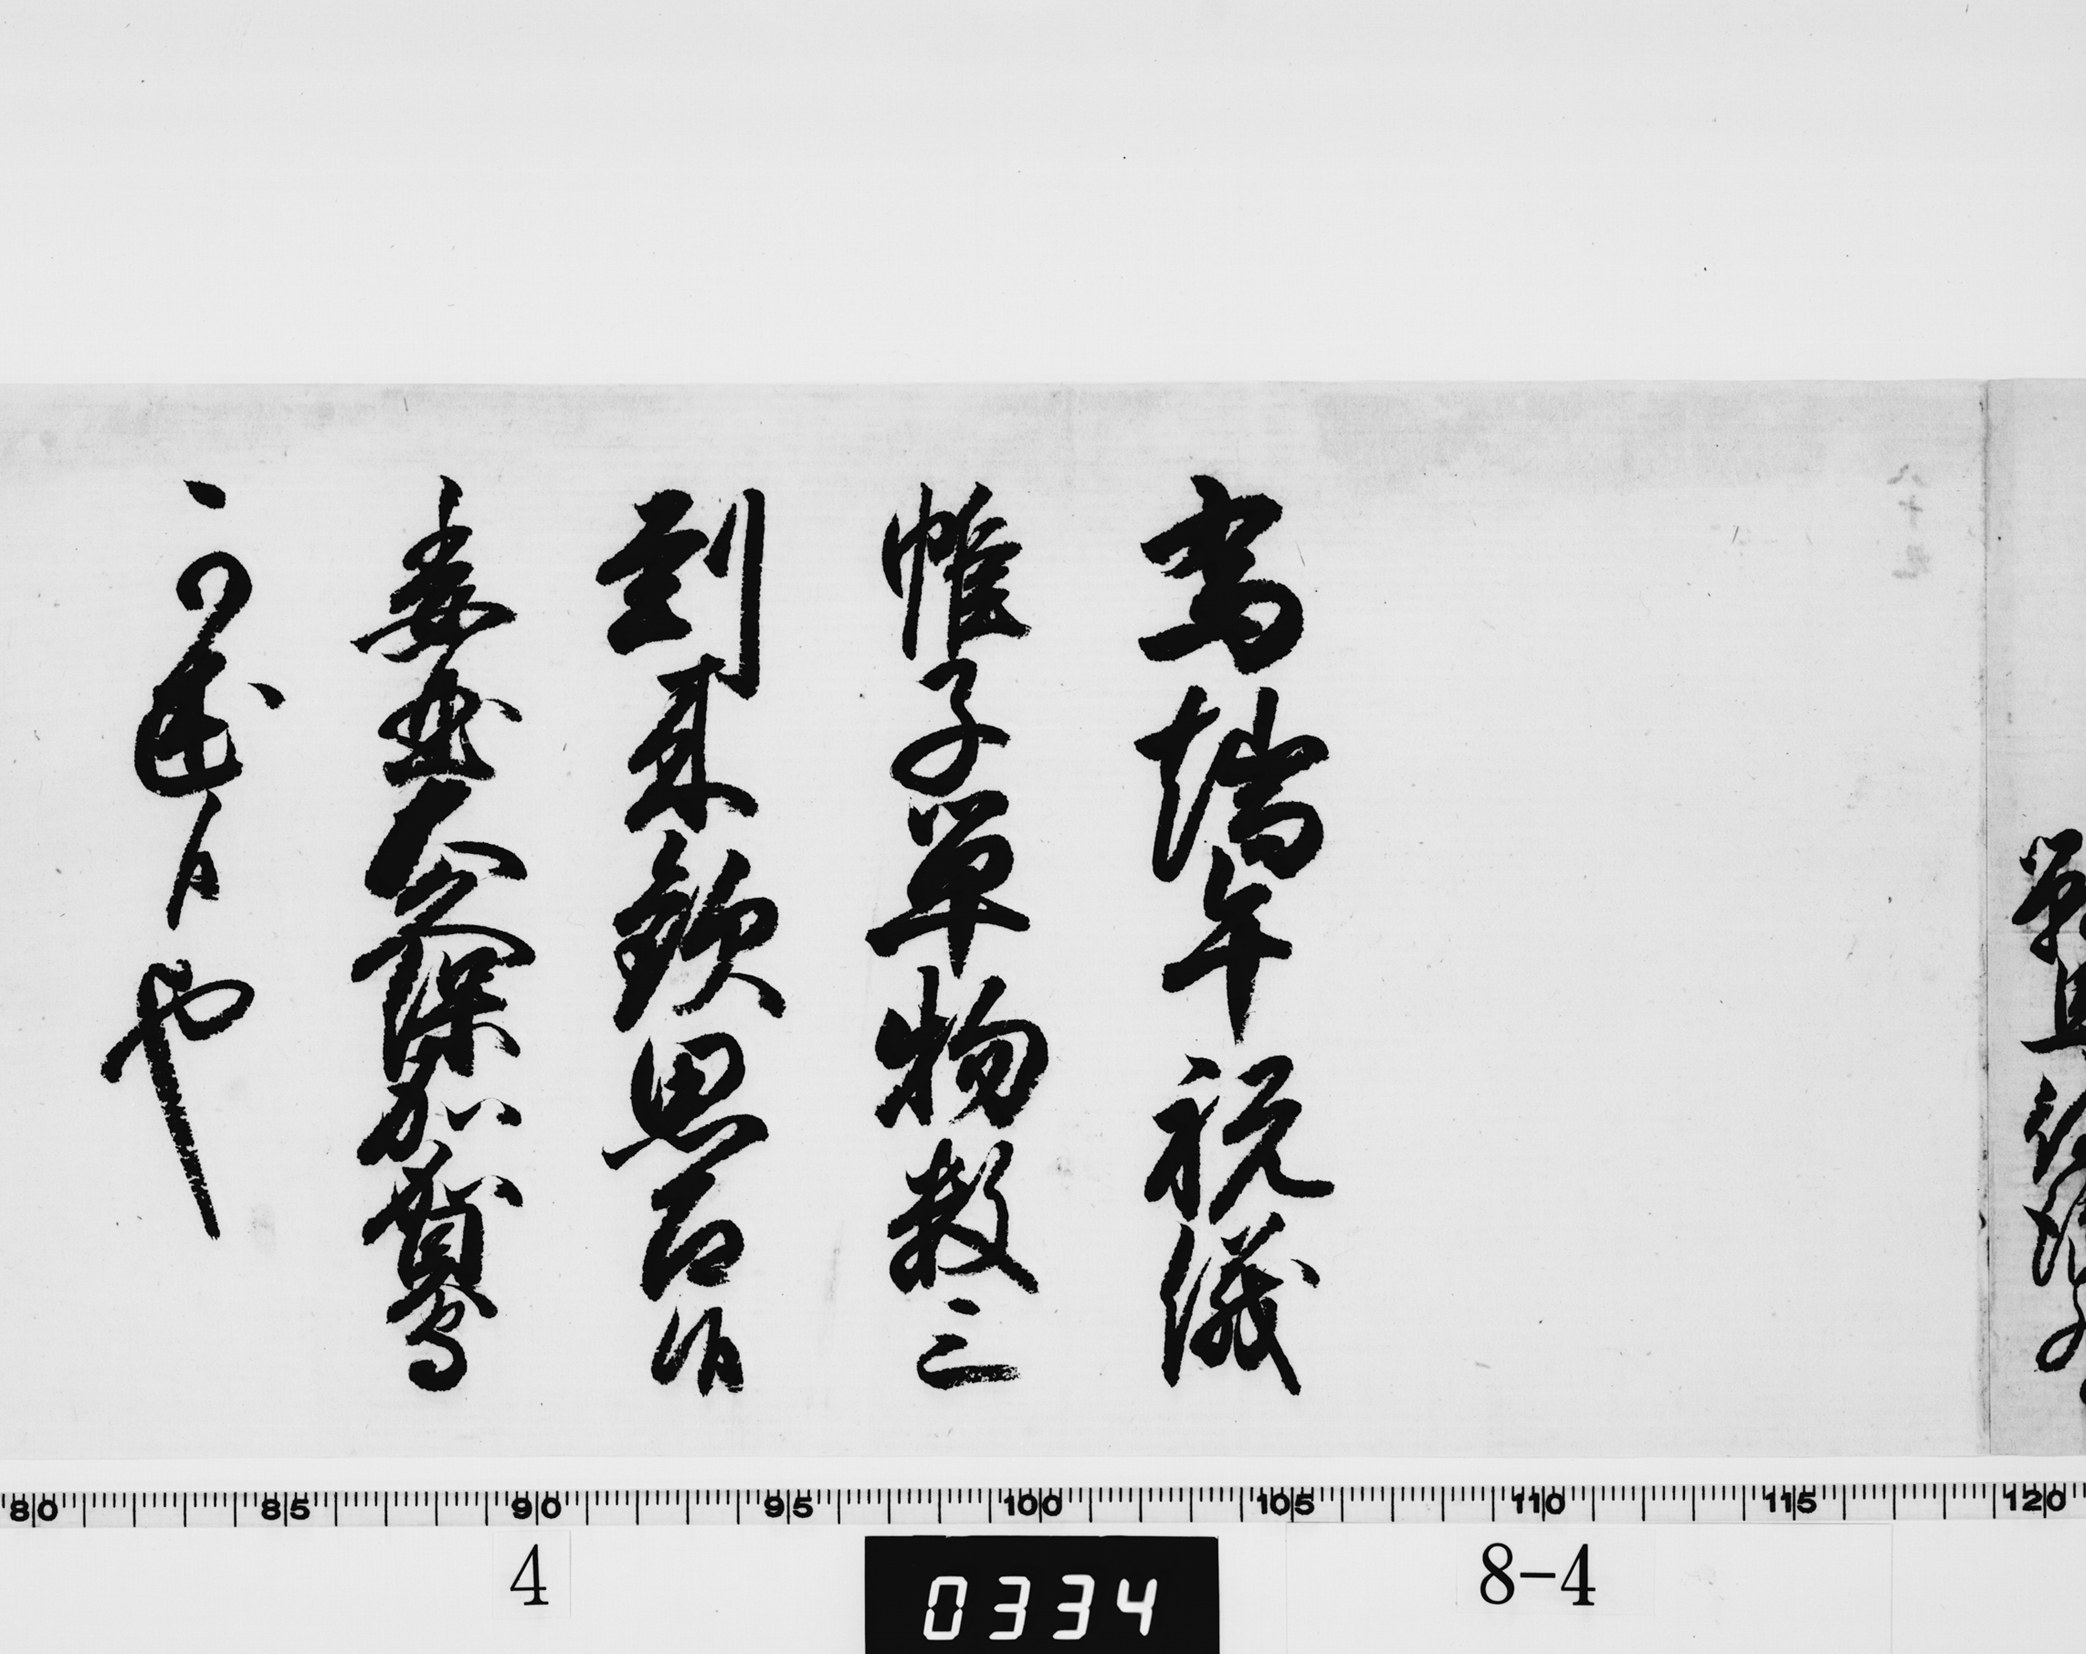 為端午祝儀
帷子単物数三
到来歓思召候
委曲大久保加賀守
可述候也
80 85 90 95 100 105 110 115 120
4
0334
8-4